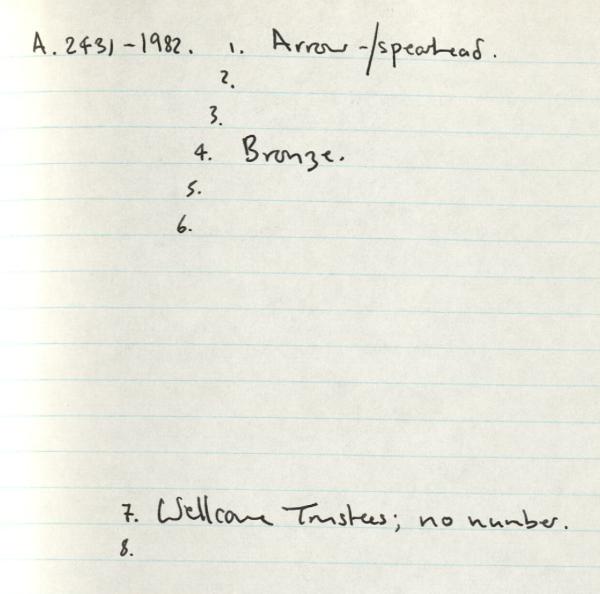 A. 2431 - 1982. 1. Arrow-/spearhead.
2.
3.
4. Bronze.
5.
6.
7. Wellcome Trustees; no number.
8.